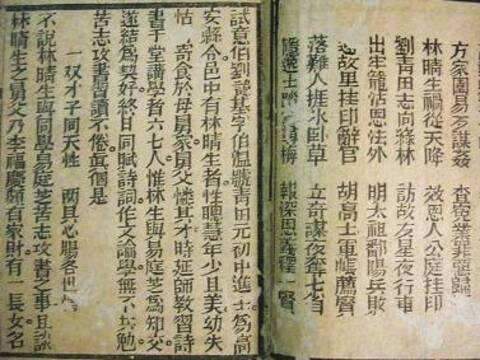 方家園易友謀姦　查冤業罪
林晴生禍從天降　效恩人公庭挂印
劉青田志向綠林　訪故友星夜行車
出生籠沽恩法外　明太祖鄱陽兵敗
急故里挂印辭官　胡高士軍帳薦賢
落難人捱氷臥草　立奇謀夜奪七省
隱逸士踏　梅　報深恩義釋一賢
試意伯劉諱基字伯溫號青田元初中進士爲高
安縣令邑中有林晴生者性聰慧年少且美幼失
怙寄食於母舅家舅父憐其才時延師教習詩
書于堂講學者六七人惟林生與易庭芝爲知交
遂結爲契好終日同賦詩詞作文論學無不共勉
苦志攻書習讀不倦眞個是
一双才子同天性　兩具心腸各世
不說林晴生與同學易庭芝苦志攻書之事且詠
林晴生之舅父乃李福慶頗有家財有一長女名